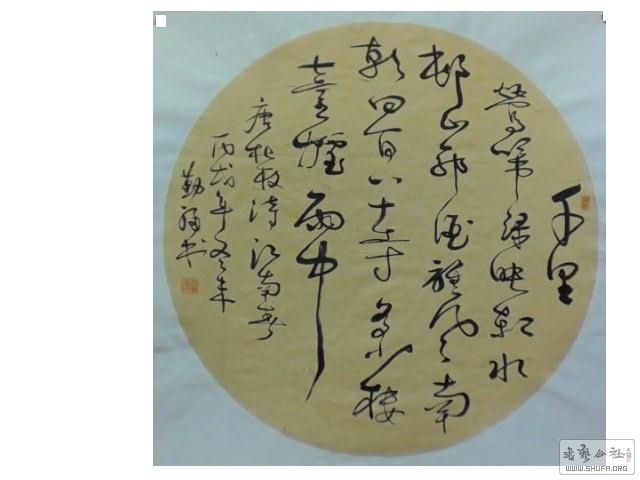 千里
鶯啼绿映红水
邨山郭酒旗风南
朝四百八十寺多少楼
臺煙雨中
唐杜牧诗江南春
丙年冬
勤书
书艺公社
WWW.SHUFA.ORG